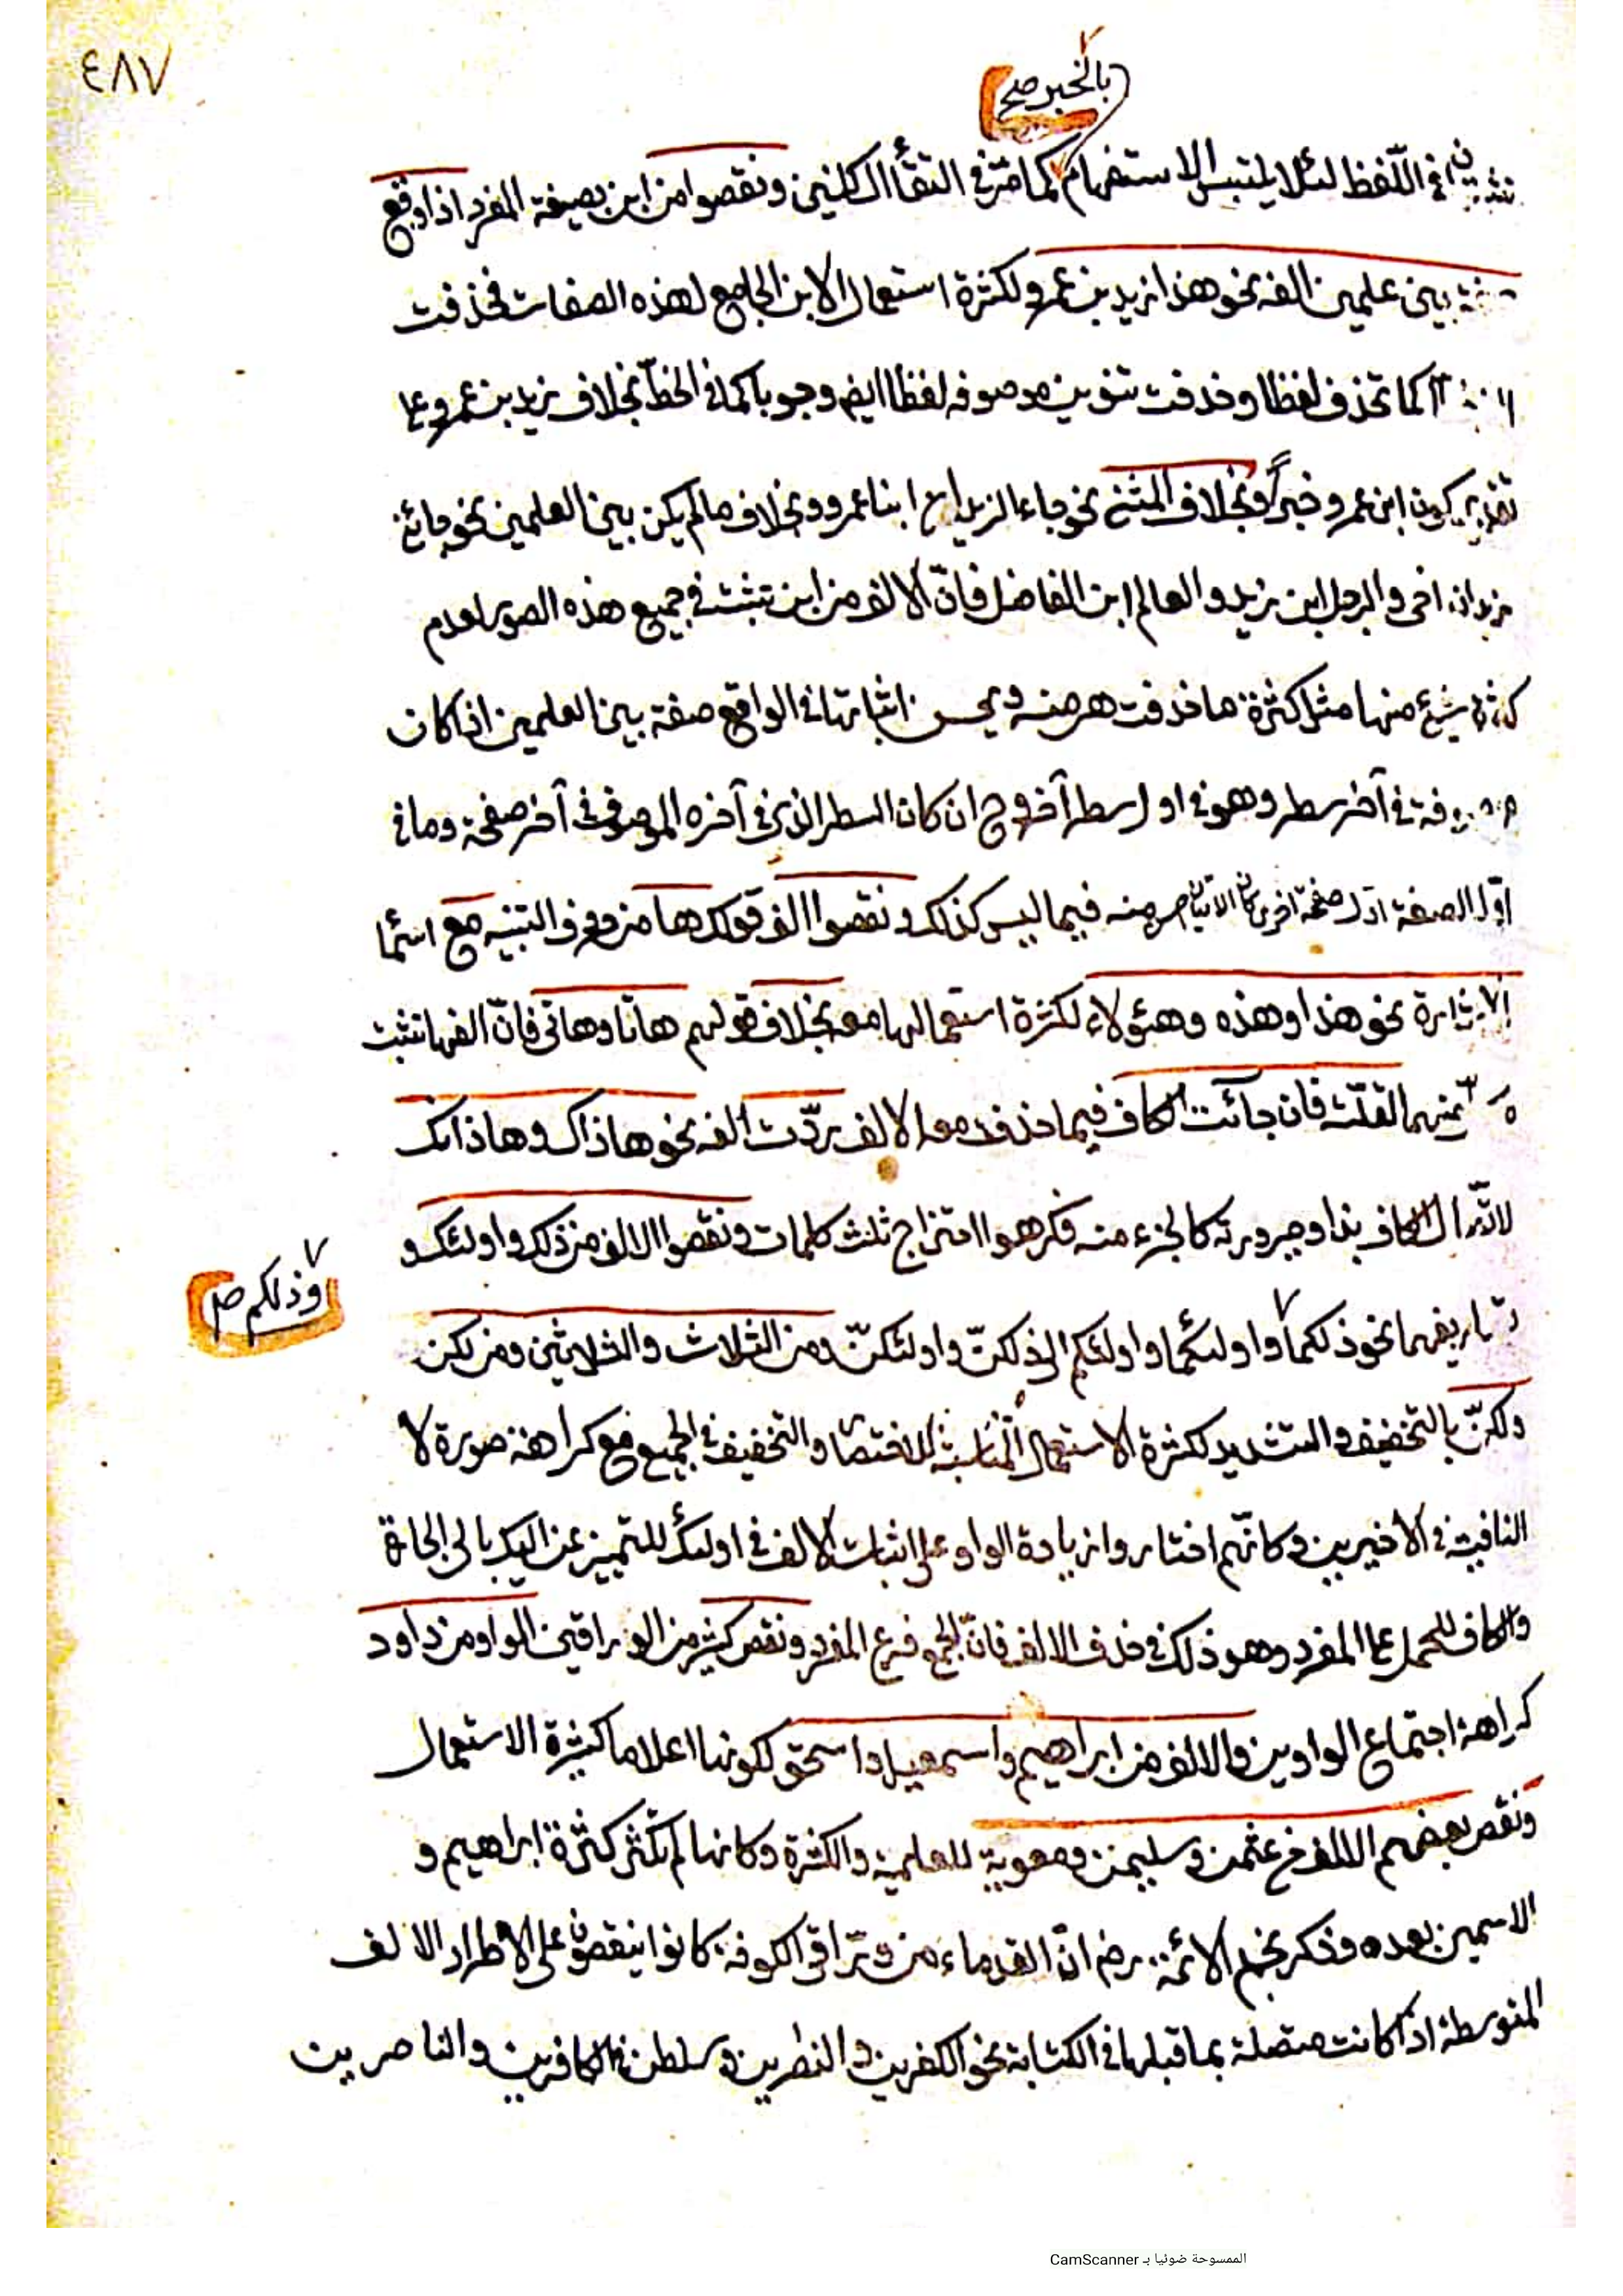 ٤٨٧
بالخبر صح
في اللّفظ لئلا يلتبس الاستفهام كما مرّ في التقاء الساكنين ونقصوا من ابن بصيغة المفرد اذا وقع
بين علمين الفه نحو هذا زيد بن عمرو لكثرة استعمال الابن الجامع لهذه الصفات فحذفت
كما تحذف لفظا وحذفت تنوين موصوفه لفظا ايض وجوبا كما في الخطّ بخلاف زيد بن عمرو على
تقدير كون ابن عمرو خبرًا وبخلاف المثنى نحو جاء الزيدان ابنا عمرو وبخلاف ما لم يكن بين العلمين نحو جائني
زيد ابن اخي والرجل ابن زيد والعالم ابن الفاضل فانّ الالف من ابن تثبت في جميع هذه الصور لعدم
كثرة شيء منها مثل كثرة ما حذفت هي منه ويحسن اثباتها في الواقع صفة بين العلمين اذا كان
في آخر سطر وهو في اول سطر آخر وح ان كان السطر الذي في آخره الموصوف في آخر صفحة وما في
اوّله الصفة اوّل صفحة اخرى كان الاثبات احسن منه فيما ليس كذلك ونقصوا الف قولك ها من حروف التنبيه مع اسما
الاشارة نحو هذا وهذه وهؤلاء لكثرة استعمالها معه بخلاف قولهم هاتا وهاتي فانّ الفها تثبت
منهما لقلّته فان جائت الكاف فيما حذف معه الالف ردّت الفه نحو هاذاك وهاذانك
لاتّصال الكاف بذا وصيرورته كالجزء منه فكرهوا امتزاج ثلث كلمات ونقصوا الالف من ذلك واولئك و
تصاريفهما نحو ذلكما واولئكما واولئكم الى ذلكنّ واولئكنّ ومن الثلاث والثلاثين ومن لكن
وذلكم صح
ولكنّ بالتخفيف والتشديد لكثرة الاستعمال المناسبة للاختصار والتخفيف في الجميع مع كراهة صورة لا
النافية في الاخيرين وكانّهم اختاروا زيادة الواو على اثبات الالف في اولئك للتمييز عن اليك بالى الجارة
والكاف للحمل على المفرد وهو ذلك في حذف الالف فانّ الجمع فرع المفرد ونقص كثير من الورّاقين الواو من داود
كراهة اجتماع الواوين والالف من ابراهيم واسمعيل واسحق لكونها اعلاما كثيرة الاستعمال
ونقص بعضهم الالف من عثمن وسليمن ومعوية للعلمية والكثرة وكانها لم تكثر كثرة ابراهيم و
الاسمين بعده وذكر نجم الائمة رض انّ القدماء من ورّاقي الكوفة كانوا ينقصون على الاطراد الالف
المتوسطة اذا كانت متصلة بما قبلها في الكتابة نحو الكفرين والنصرين وسلطن في الكافرين والناصرين
الممسوحة ضوئيا بـ CamScanner